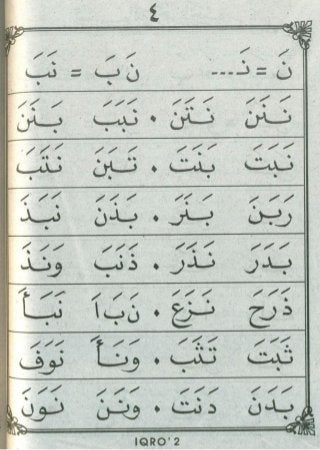 ٤
نَ = نَـ... نَ بَ = نَبَ
نَنَنَ نَتَنَ • نَبَبَ بَنَنَ
نَبَتَ بَنَتَ • تَبَنَ نَتَبَ
رَبَنَ بَنَرَ • بَذَنَ نَبَذَ
بَدَرَ نَذَرَ • ذَنَبَ وَنَذَ
ذَرَحَ نَزَعَ • نَ بَ اَ نَبَأَ
ثَبَتَ تَثَبَ • وَنَأَ نَوَفَ
بَدَنَ دَنَتَ • وَنَنَ نَوَنَ
IQRO' 2